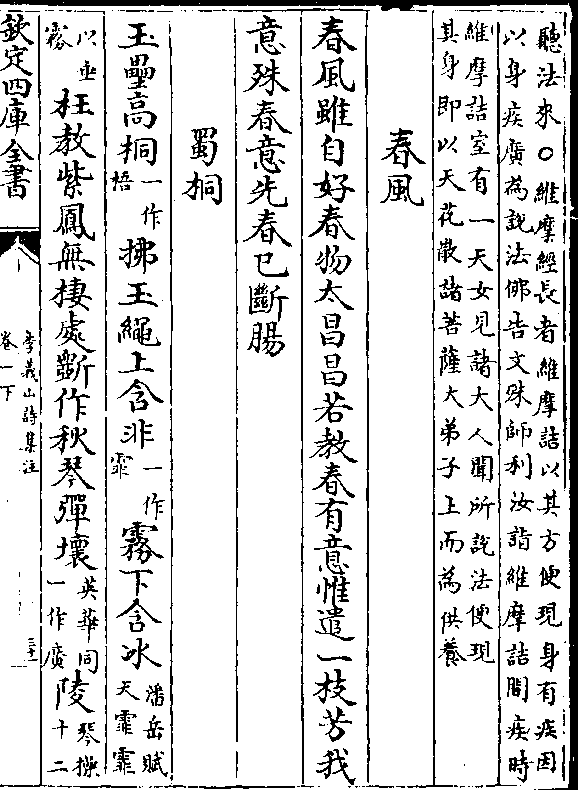 聽法來○維摩經長者維摩詰以其方便現身有疾因
以身疾廣為說法佛告文殊師利汝詣維摩詰問疾時
維摩詰室有一天女見諸大人聞所說法便現
其身即以天花散諸菩薩大弟子上而為供養
春風
春風雖自好春物太昌昌若教春有意惟遣一枝芳我
意殊春意先春已斷腸
蜀桐
玉壘高桐一作梧拂玉繩上含非一作霏霧下含冰潘岳賦天霏霏
以垂霧枉教紫鳳無棲處斵作秋琴彈壞英華同一作廣陵琴操十二
欽定四庫全書
李義山詩集注
卷一下